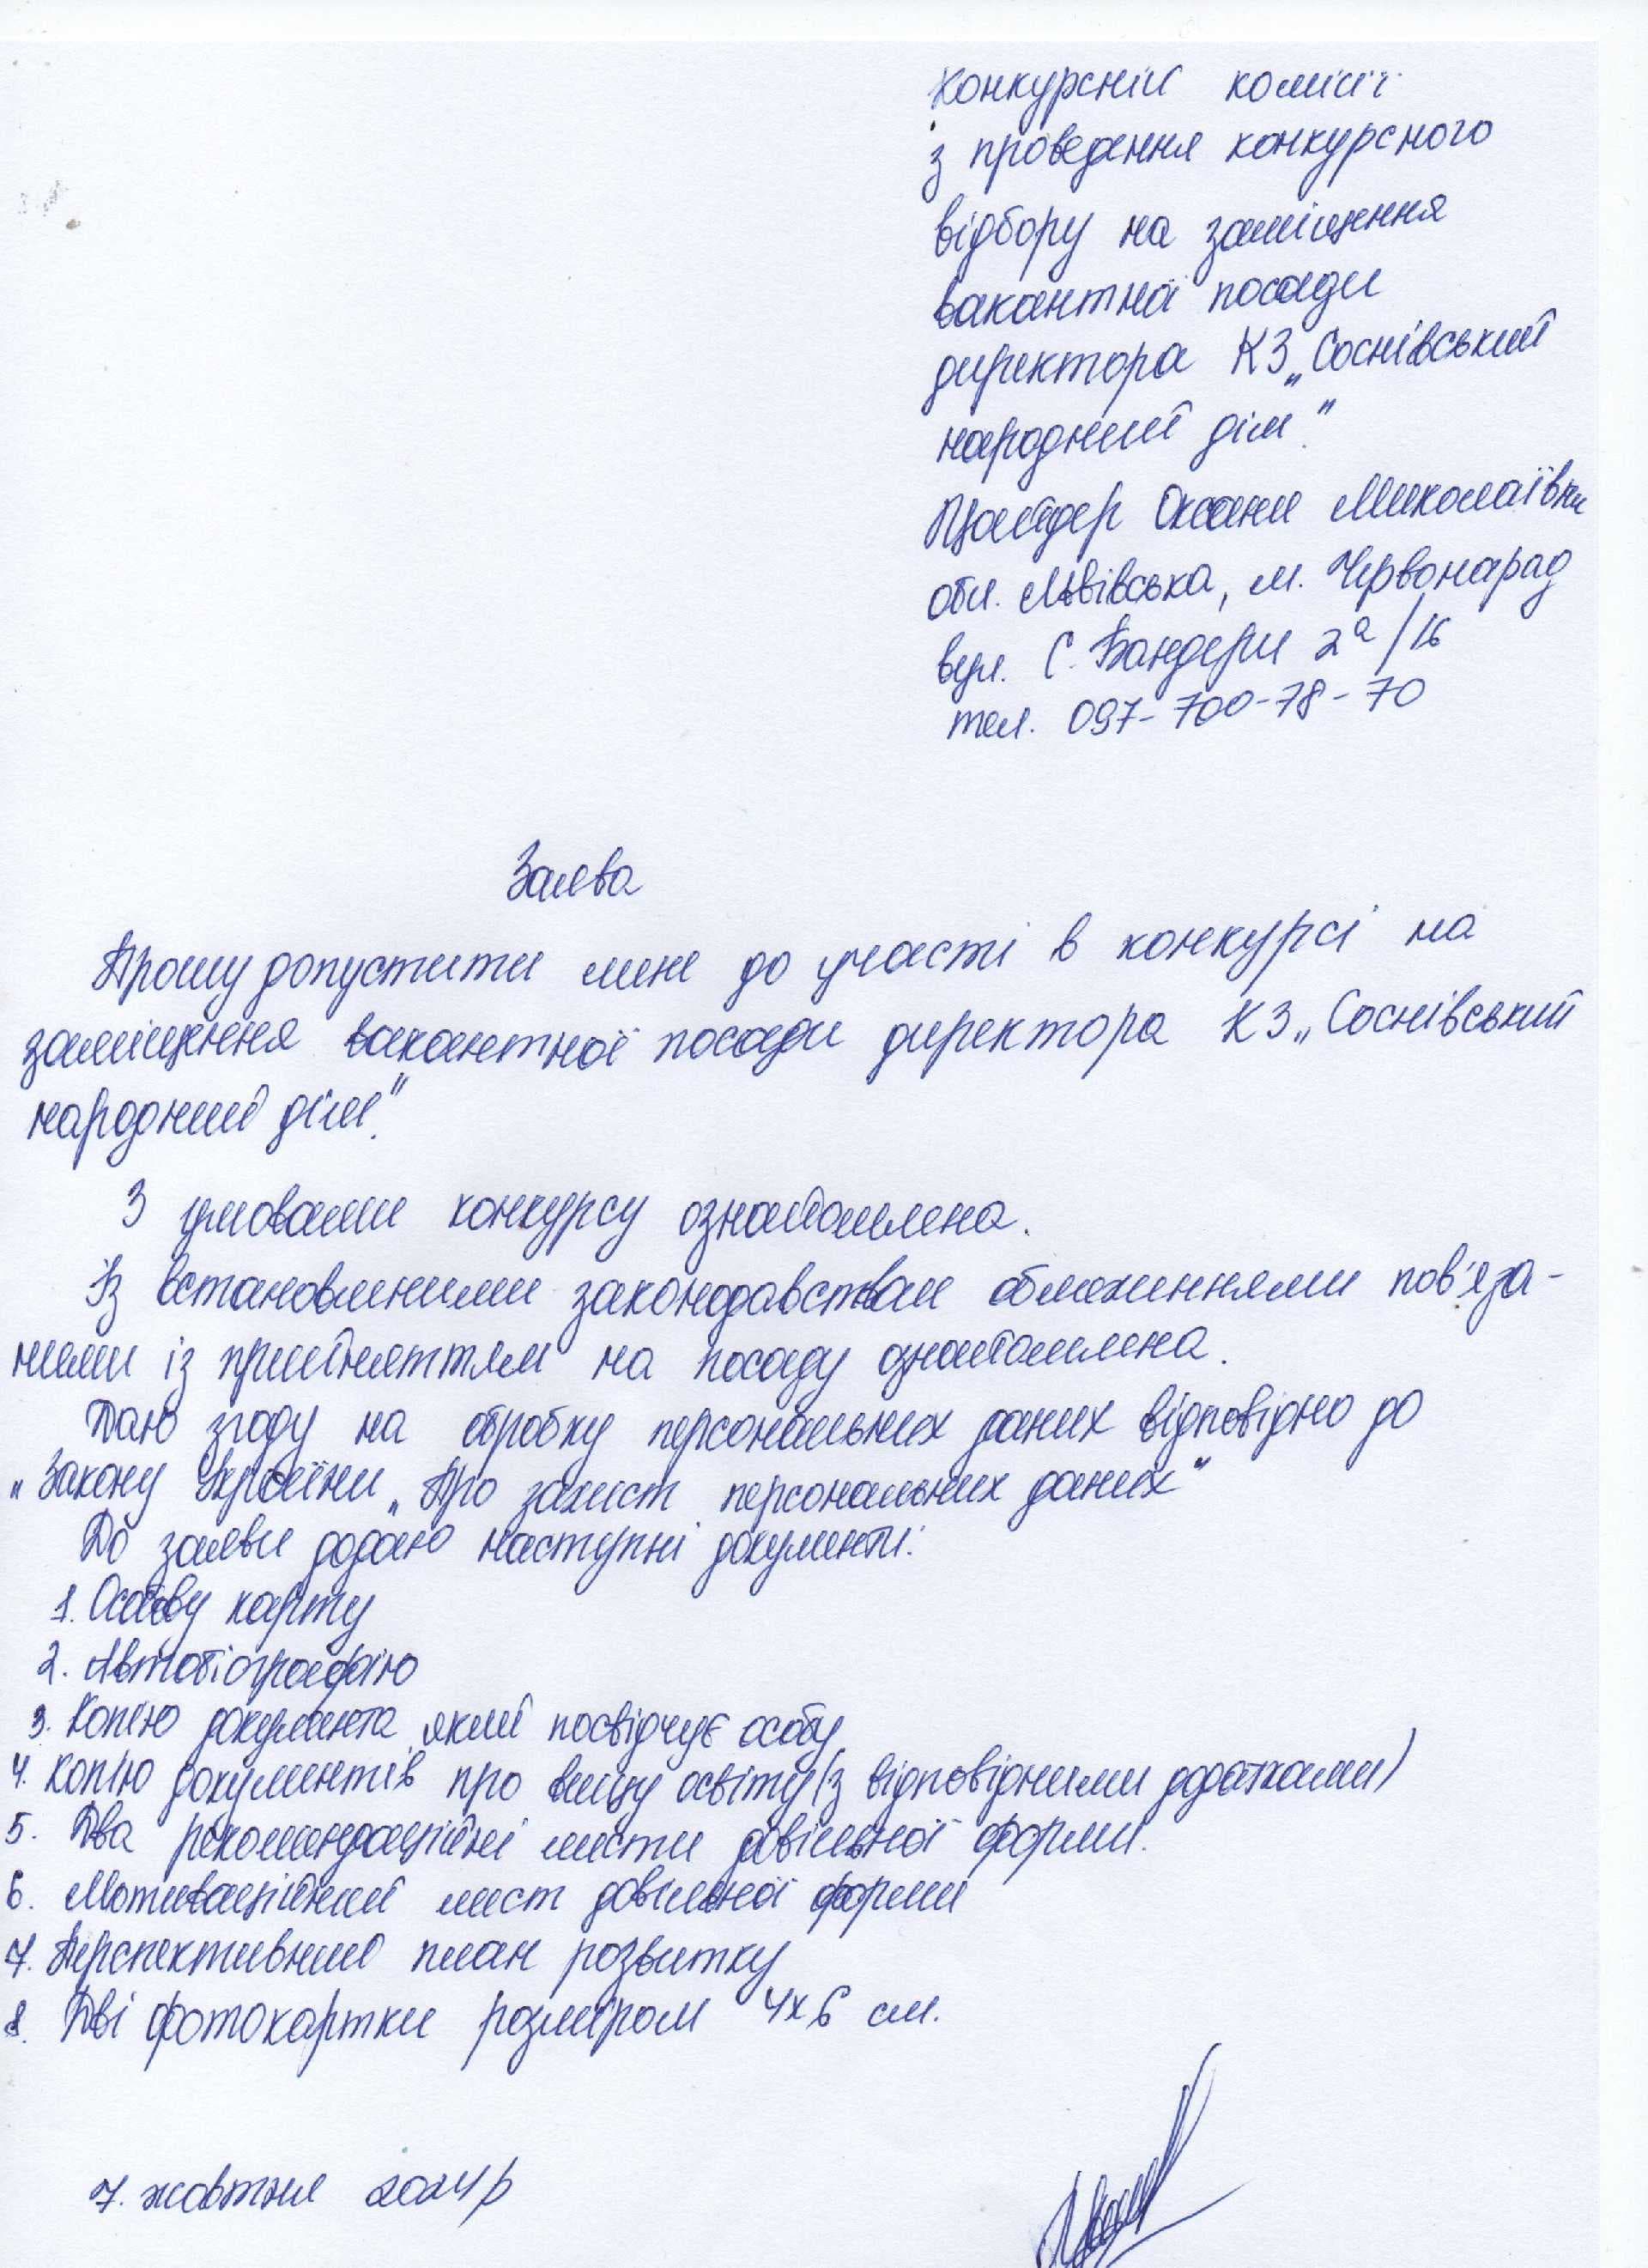 Конкурсній комісії
з проведення конкурсного
відбору на заміщення
вакантної посади
директора КЗ „Соснівський
народний дім".
Оксани Миколаївни
обл. Львівська, м. Червоноград
вул. С. Бандери 2а/16
тел. 097-700-78-70
Заява
Прошу допустити мене до участі в конкурсі на
заміщення вакантної посади директора КЗ „Соснівський
народний дім".
З умовами конкурсу ознайомлена.
Із встановленими законодавством обмеженнями пов'яза-
ними із прийняттям на посаду ознайомлена.
Даю згоду на обробку персональних даних відповідно до
„Закону України „Про захист персональних даних"
До заяви додаю наступні документи:
1. Особову карту
2. Автобіографію
3. Копію документа який посвідчує особу
4. Копію документів про вищу освіту (з відповідними додатками)
5. Два рекомендаційні листи довільної форми.
6. Мотиваційний лист довільної форми
7. Перспективний план розвитку
8. Дві фотокартки розміром 4х6 см.
7. жовтня 2024р